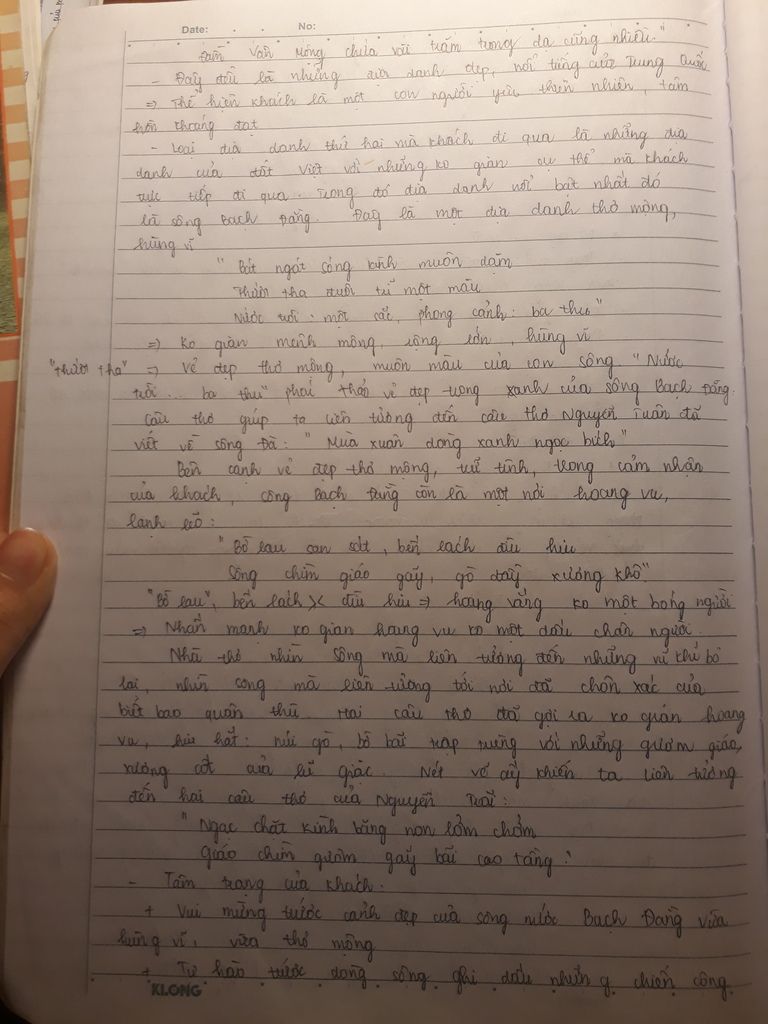 Date: . . No:
Đầm Vân Mộng chứa vài trăm trong dạ cũng nhiều."
- Đây đều là những địa danh đẹp, nổi tiếng của Trung Quốc
=> Thể hiện khách là một con người yêu thiên nhiên, tâm
hồn khoáng đạt
- Loại địa danh thứ hai mà khách đi qua là những địa
danh của đất Việt với những ko gian cụ thể mà khách
trực tiếp đi qua. Trong đó địa danh nổi bật nhất đó
là sông Bạch Đằng. Đây là một địa danh thơ mộng,
hùng vĩ
"Bát ngát sóng kình muôn dặm
Thướt tha đuôi trĩ một màu
Nước trời: một sắc, phong cảnh: ba thu"
=> Ko gian mênh mông, rộng lớn, hùng vĩ
"thướt tha" => vẻ đẹp thơ mộng, muôn màu của con sông "Nước
trời... ba thu" phải thảo vẻ đẹp trong xanh của sông Bạch Đằng.
Câu thơ giúp ta liên tưởng đến câu thơ Nguyễn Tuân đã
viết về sông Đà: "Mùa xuân dòng xanh ngọc bích"
Bên cạnh vẻ đẹp thơ mộng, trữ tình, trong cảm nhận
của khách, sông Bạch Đằng còn là một nơi hoang vu,
lạnh lẽo:
"Bờ lau san sát, bến lách đìu hiu
Sông chìm giáo gãy, gò đầy xương khô"
"Bờ lau", bến lách >< đìu hiu => hoang vắng ko một bóng người
=> Nhấn mạnh ko gian hoang vu ko một dấu chân người.
Nhà thơ nhìn sông mà liên tưởng đến những vũ khí bỏ
lại, nhìn mà liên tưởng tới nơi đã chôn xác của
biết bao quân thù. Hai câu thơ đã gợi ra ko gian hoang
vu, hiu hắt: núi gò, bờ bãi trập trùng với những gươm giáo,
xương cốt của lũ giặc. Nét vẽ ấy khiến ta liên tưởng
đến hai câu thơ của Nguyễn Trãi:
"Ngạc chặt kình băm non lởm chởm
Giáo chìm gươm gãy bãi cao tầng."
- Tâm trạng của khách.
+ Vui mừng trước cảnh đẹp của sông nước Bạch Đằng vừa
hùng vĩ, vừa thơ mộng
+ Tự hào trước dòng sông ghi dấu những chiến công
KLONG